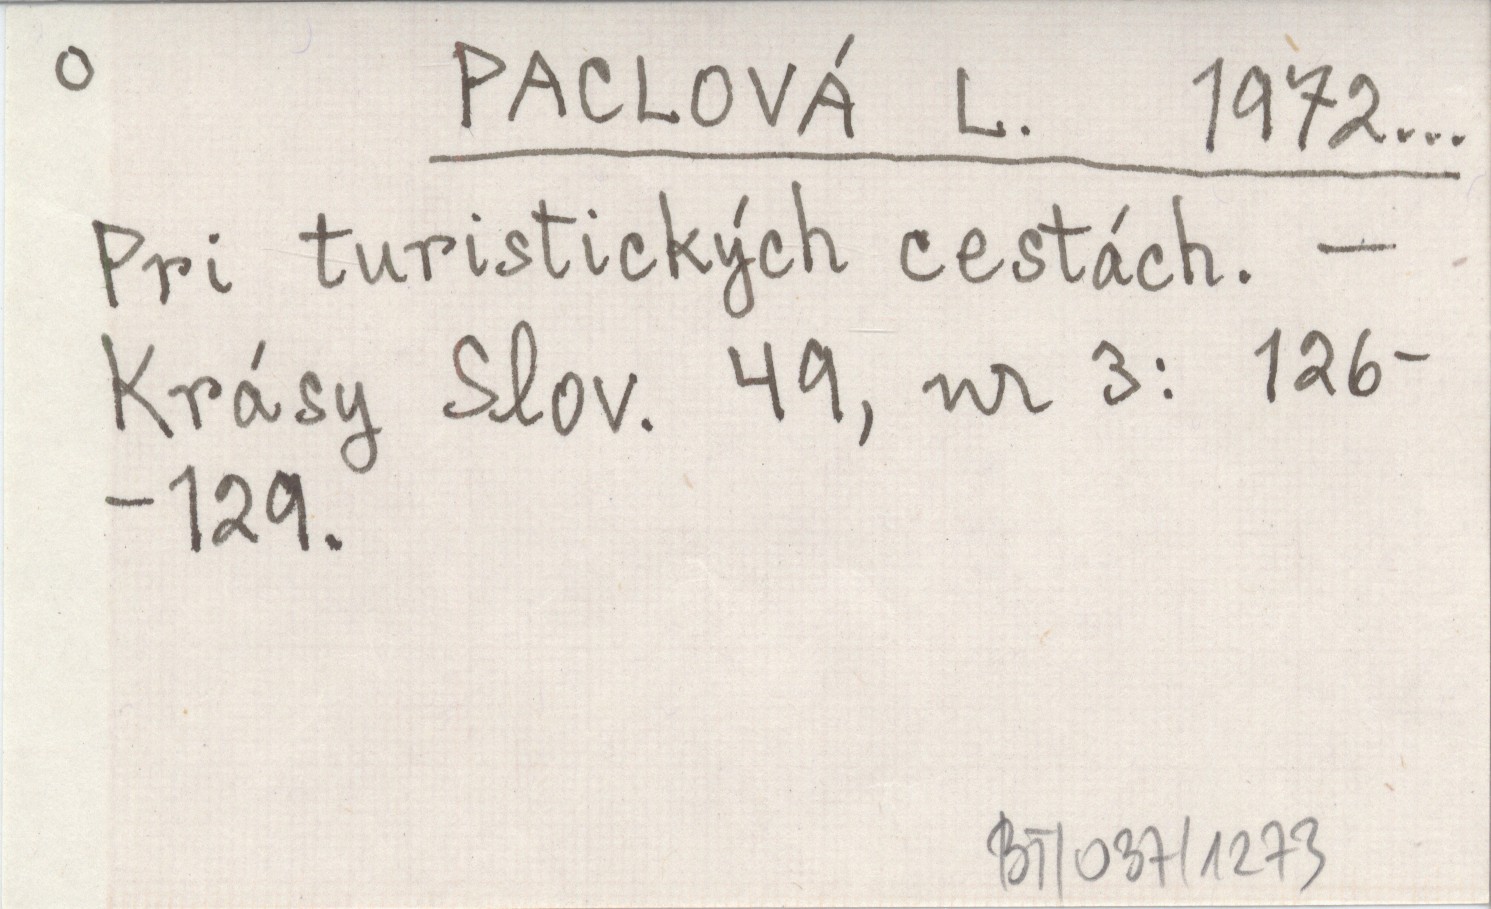 O PACLOVÁ L. 1972....
Pri turistických cestách. —
Krásy Slov. 49, nr 3: 126-
-129.
BT/037/1273